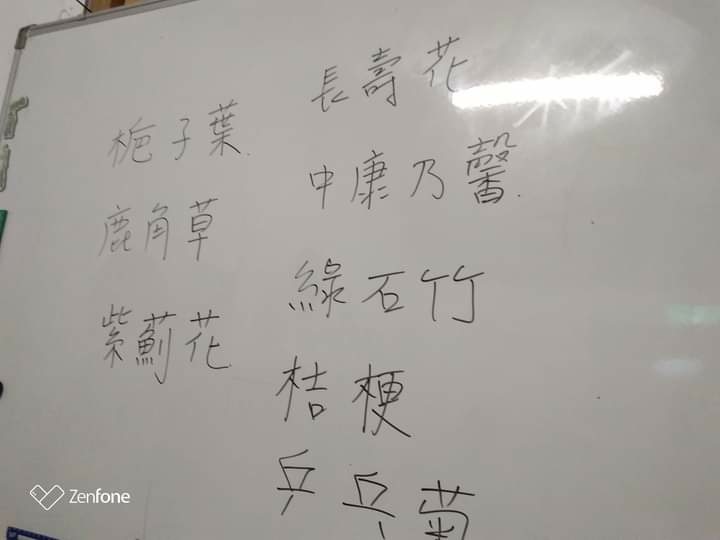 長壽花
中康乃馨
綠石竹
桔梗
乒乓菊
梔子葉
鹿角草
紫薊花
Zenfone